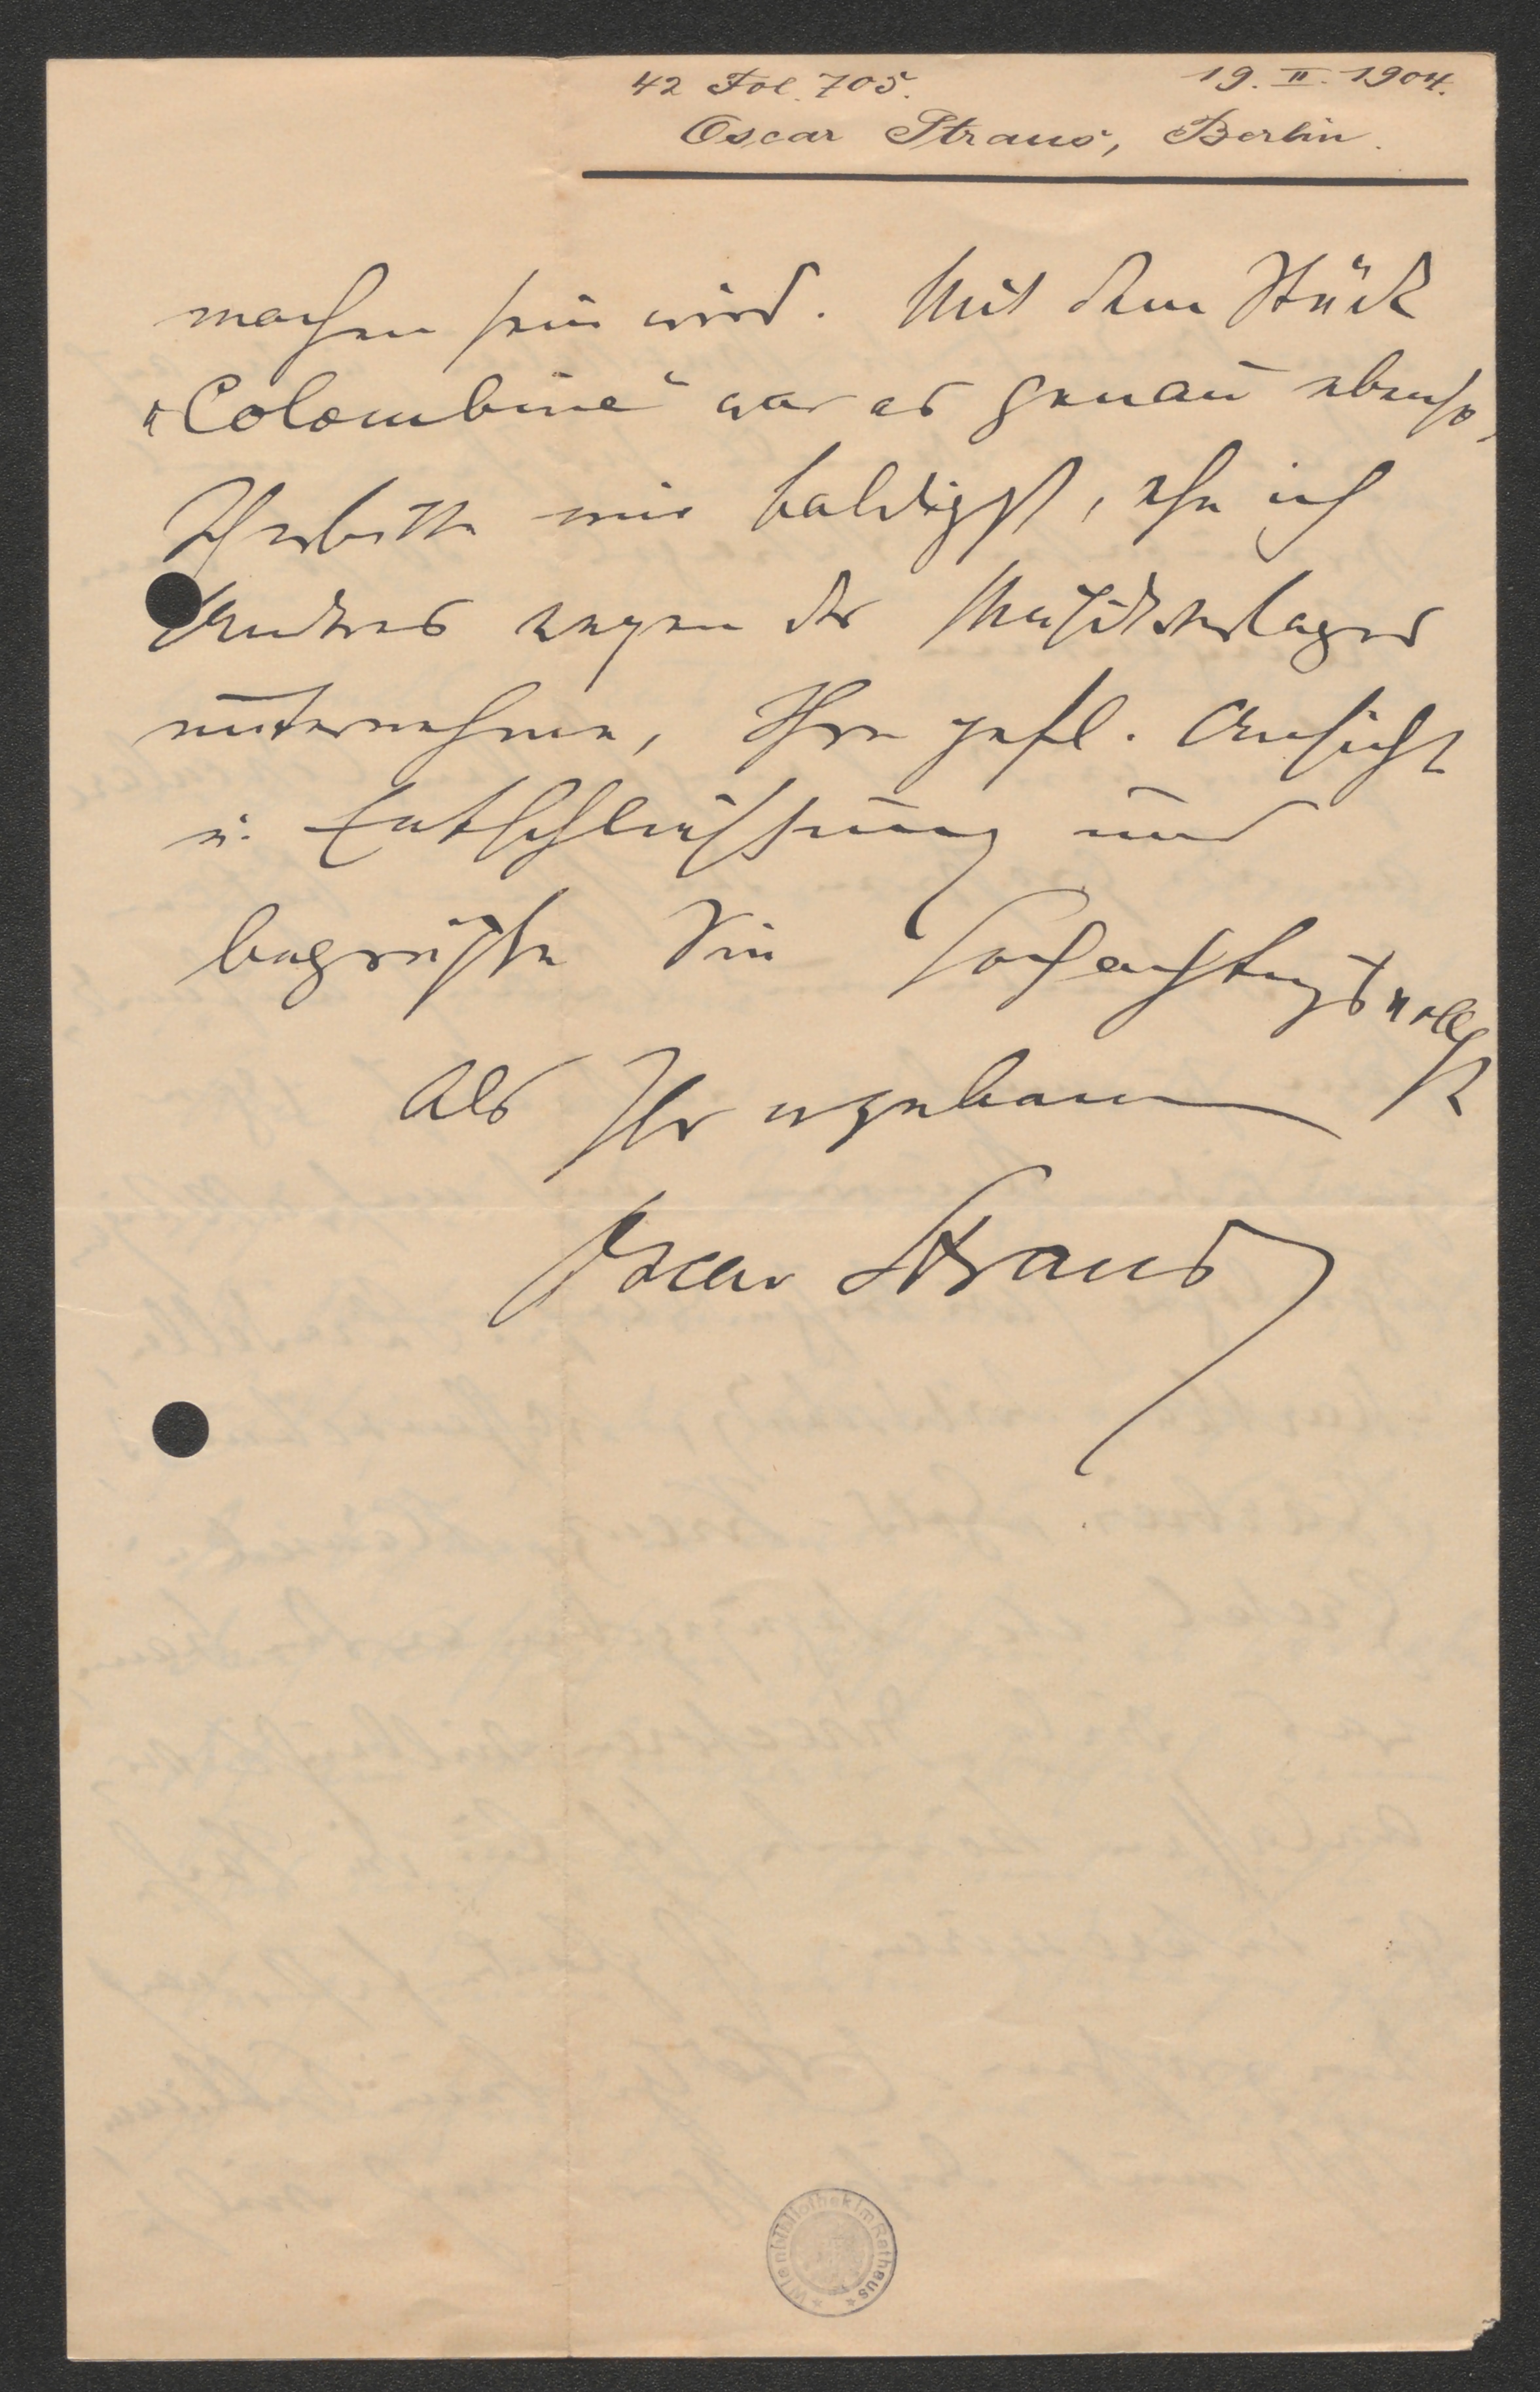 42 Fol. 705. 19. II. 1904.
Oscar Straus, Berlin.
machen sein wird. Mit dem Stück
„Colombine“ war es genau ebenso,
Ich erbitte mir baldigst, ehe ich
Andres wegen des Musikverlages
unternehme, Ihre gefl. Ansicht
u. Entschliessung und
begrüsse Sie hochachtungsvollst
als Ihr ergebener
Oscar Straus
Wienbibliothek im Rathaus